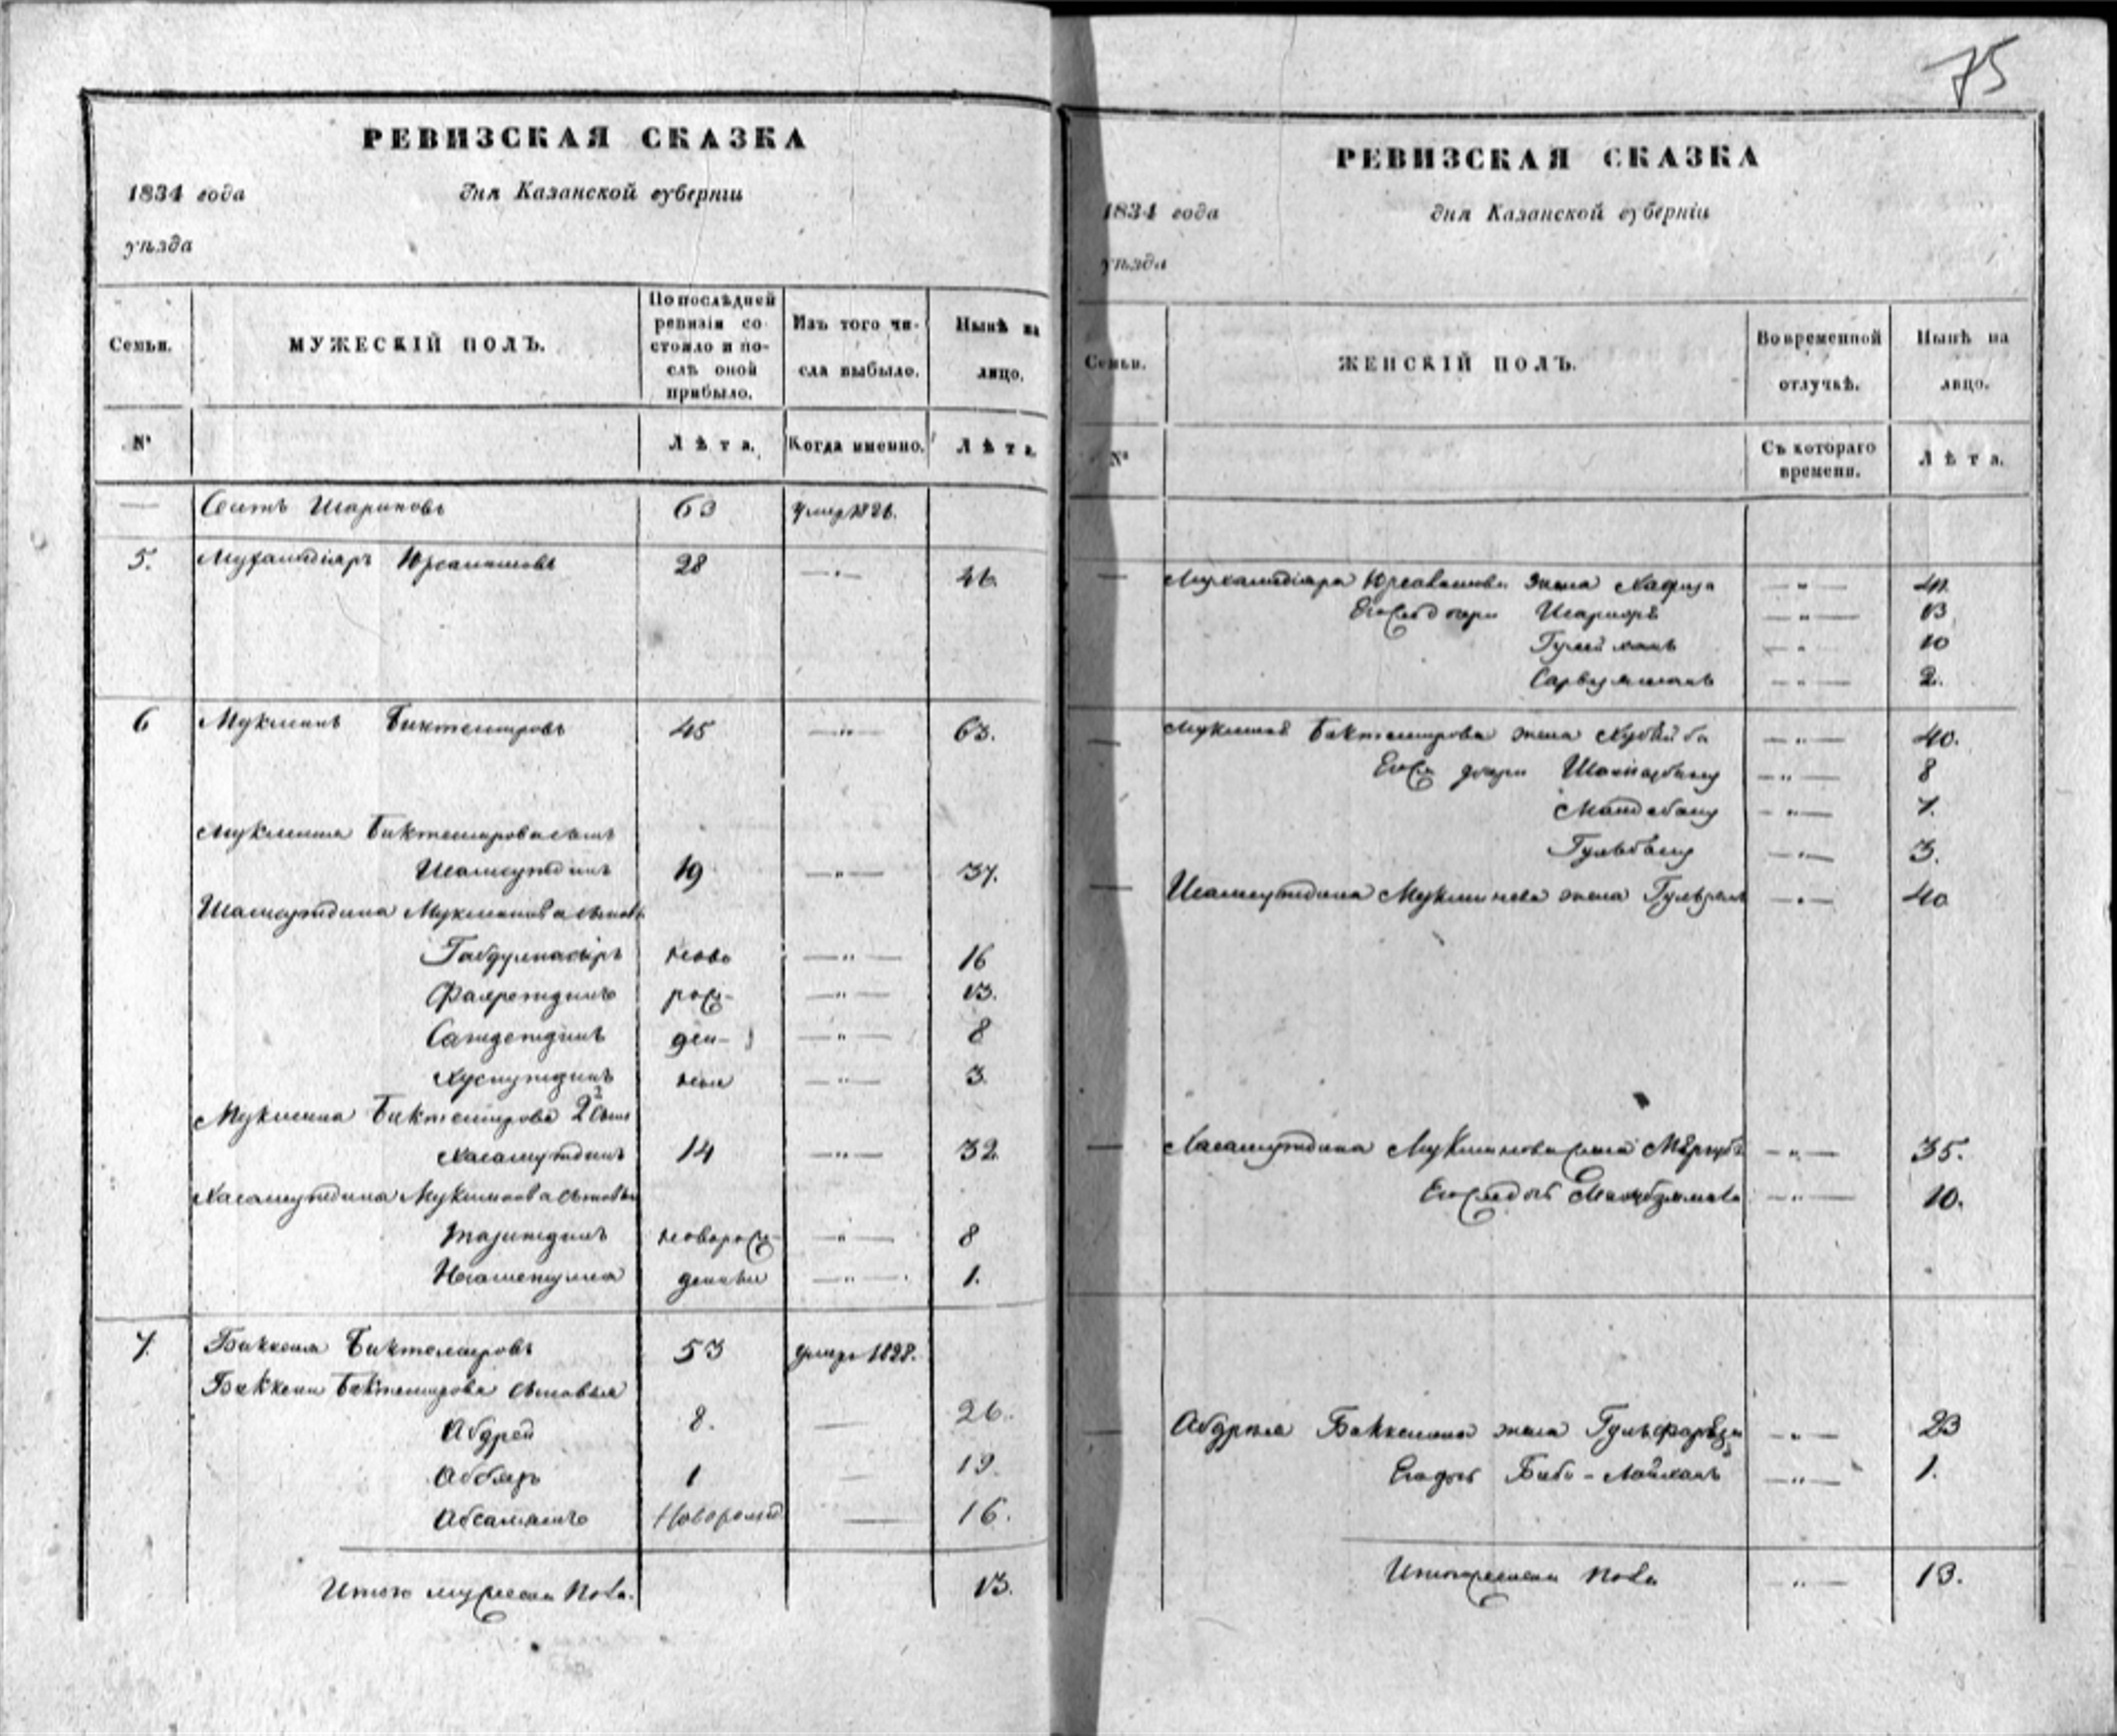 75
РЕВИЗСКАЯ СКАЗКА
1834 года дня Казанской губерніи
уѣзда
Семьи. МУЖЕСКІЙ ПОЛЪ. По послѣдней ревизіи состояло и послѣ оной прибыло. Изъ того числа выбыло. Нынѣ на лицо.
№ Лѣта. Когда именно. Лѣта.
— Сеитъ Шариповъ 63 умер 1826.
5. Мухаметдіяръ 28 — " — 46.
6 Мукминъ Биктемировъ 45 — " — 63.
Мукмина Биктемирова сынъ
Шамсутдинъ 19 — " — 37.
Шамсутдина Мукминова сыновья
Габдулнасыръ ново 16
Фахретдинъ рож- 13.
Сагидетдинъ ден- 8
Хуснутдинъ ные 3.
Мукмина Биктемирова 2й сынъ
Хасамутдинъ 14 — " — 32.
Хасамутдина Мукминова сыновья
Тазитдинъ новорож- 8
денные — " — 1.
7. Биктемировъ 53 умре 1828.
Биктемирова сыновья
Абдрей 8. — 26.
Аббяръ 1 — 19.
Абсалямъ Новорожд — 16.
Итого мужеска пола. 13.
РЕВИЗСКАЯ СКАЗКА
1834 года дня Казанской губерніи
уѣзда
Семьи. ЖЕНСКІЙ ПОЛЪ. Во временной отлучкѣ. Нынѣ на лицо.
№ Съ котораго времени. Лѣта.
— жена Хафиза — " — 41.
Его же дочери — " — 13
10
2.
— Мукмина Биктемирова жена Хубейба — " — 40.
Его же дочери — " — 8
7.
Гульбану — " — 3.
— Шамсутдина Мукминова жена — " — 40
— Хасамутдина Мукминова жена — " — 35.
Его же дочь — " — 10.
— жена — " — 23
Его дочь Биби-Лайханъ — " — 1.
Итого женска пола — " — 13.